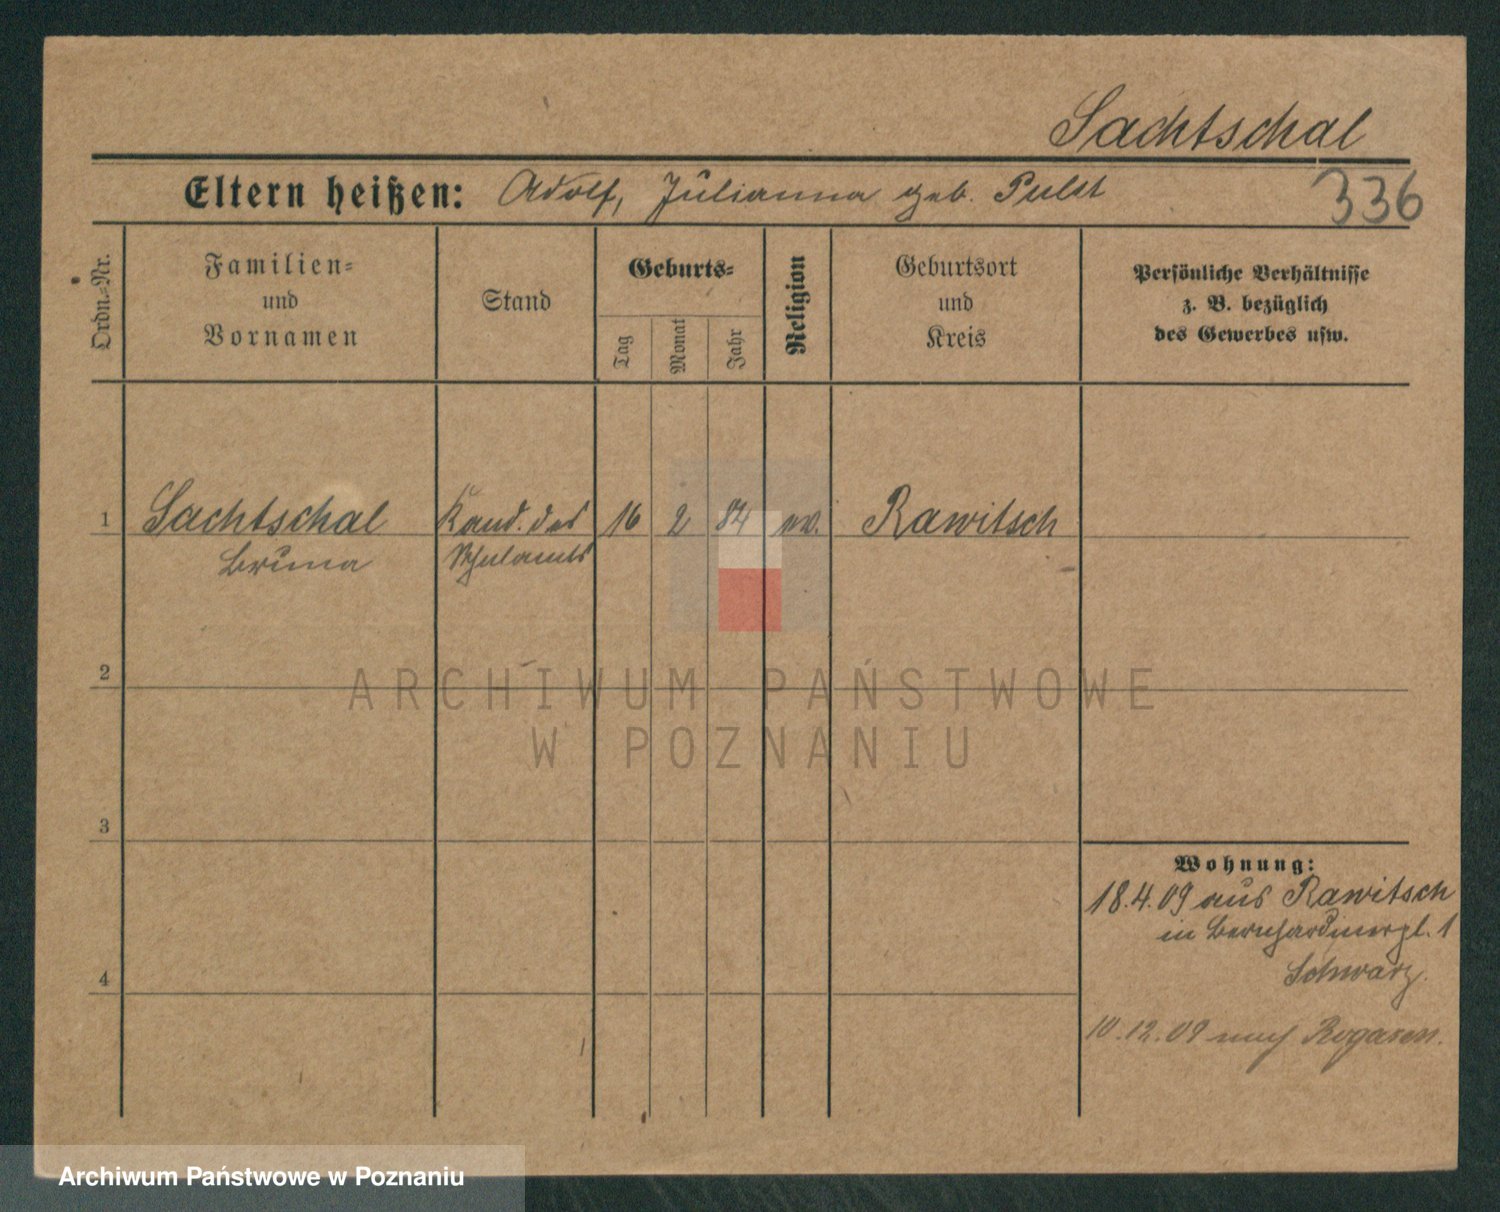 Sachtschal
Eltern heißen: Adolf, Julianna geb. Pulst
336
Ordn.-Nr.
Familien-
und
Vornamen
Stand
Geburts-
Tag
Monat
Jahr
Religion
Geburtsort
und
Kreis
Persönliche Verhältnisse
z. B. bezüglich
des Gewerbes usw.
1 Sachtschal Kand. des 16 2 84 ev. Rawitsch
Bruna Schulamts
2
ARCHIWUM PAŃSTWOWE
W POZNANIU
3
Wohnung:
18.4.09 aus Rawitsch
in Bernhardinerpl. 1
Schwarz.
4
10.12.09 nach Rogasen.
Archiwum Państwowe w Poznaniu